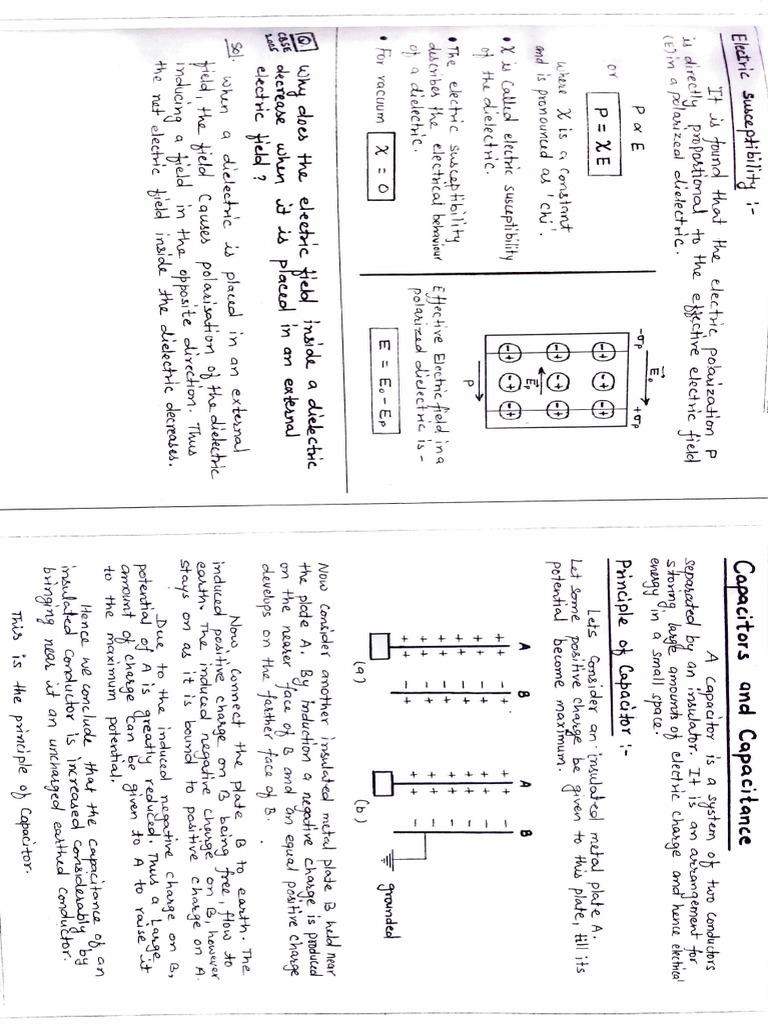 Electric Susceptibility :-
It is found that the electric polarization P
is directly proportional to the effective electric field
(E) in a polarized dielectric.
P α E
or
P = χE
where χ is a constant
and is pronounced as 'chi'.
• χ is called electric susceptibility
of the dielectric.
• The electric susceptibility
describes the electrical behaviour
of a dielectric.
• For vacuum χ = 0
E₀
-σp +σp
- + - + - +
- + - + - +
Ep
- + - + - +
P
Effective Electric field in a
polarized dielectric is -
E = E₀ - Ep
Q. Why does the electric field inside a dielectric
CBSE 2005
decrease when it is placed in an external
electric field ?
Sol. When a dielectric is placed in an external
field, the field causes polarisation of the dielectric
inducing a field in the opposite direction. Thus
the net electric field inside the dielectric decreases.
Capacitors and Capacitance
A Capacitor is a system of two conductors
separated by an insulator. It is an arrangement for
storing large amounts of electric charge and hence electrical
energy in a small space.
Principle of Capacitor :-
Lets Consider an insulated metal plate A.
Let some positive charge be given to this plate, till its
potential become maximum.
A B
+ + - +
+ + - +
+ + - +
+ + - +
+ + - +
+ + - +
(a)
A B
+ + -
+ + -
+ + -
+ + -
+ + -
+ + -
grounded
(b)
Now consider another insulated metal plate B held near
the plate A. By induction a negative charge is produced
on the nearer face of B and an equal positive charge
develops on the farther face of B.
Now, connect the plate B to earth. The
induced positive charge on B being free, flow to
earth. The induced negative charge on B, however
stays on as it is bound to positive charge on A.
Due to the induced negative charge on B,
potential of A is greatly reduced. Thus a large
amount of charge can be given to A to raise it
to the maximum potential.
Hence we conclude that the capacitance of an
insulated conductor is increased considerably by
bringing near it an uncharged earthed conductor.
This is the principle of Capacitor.